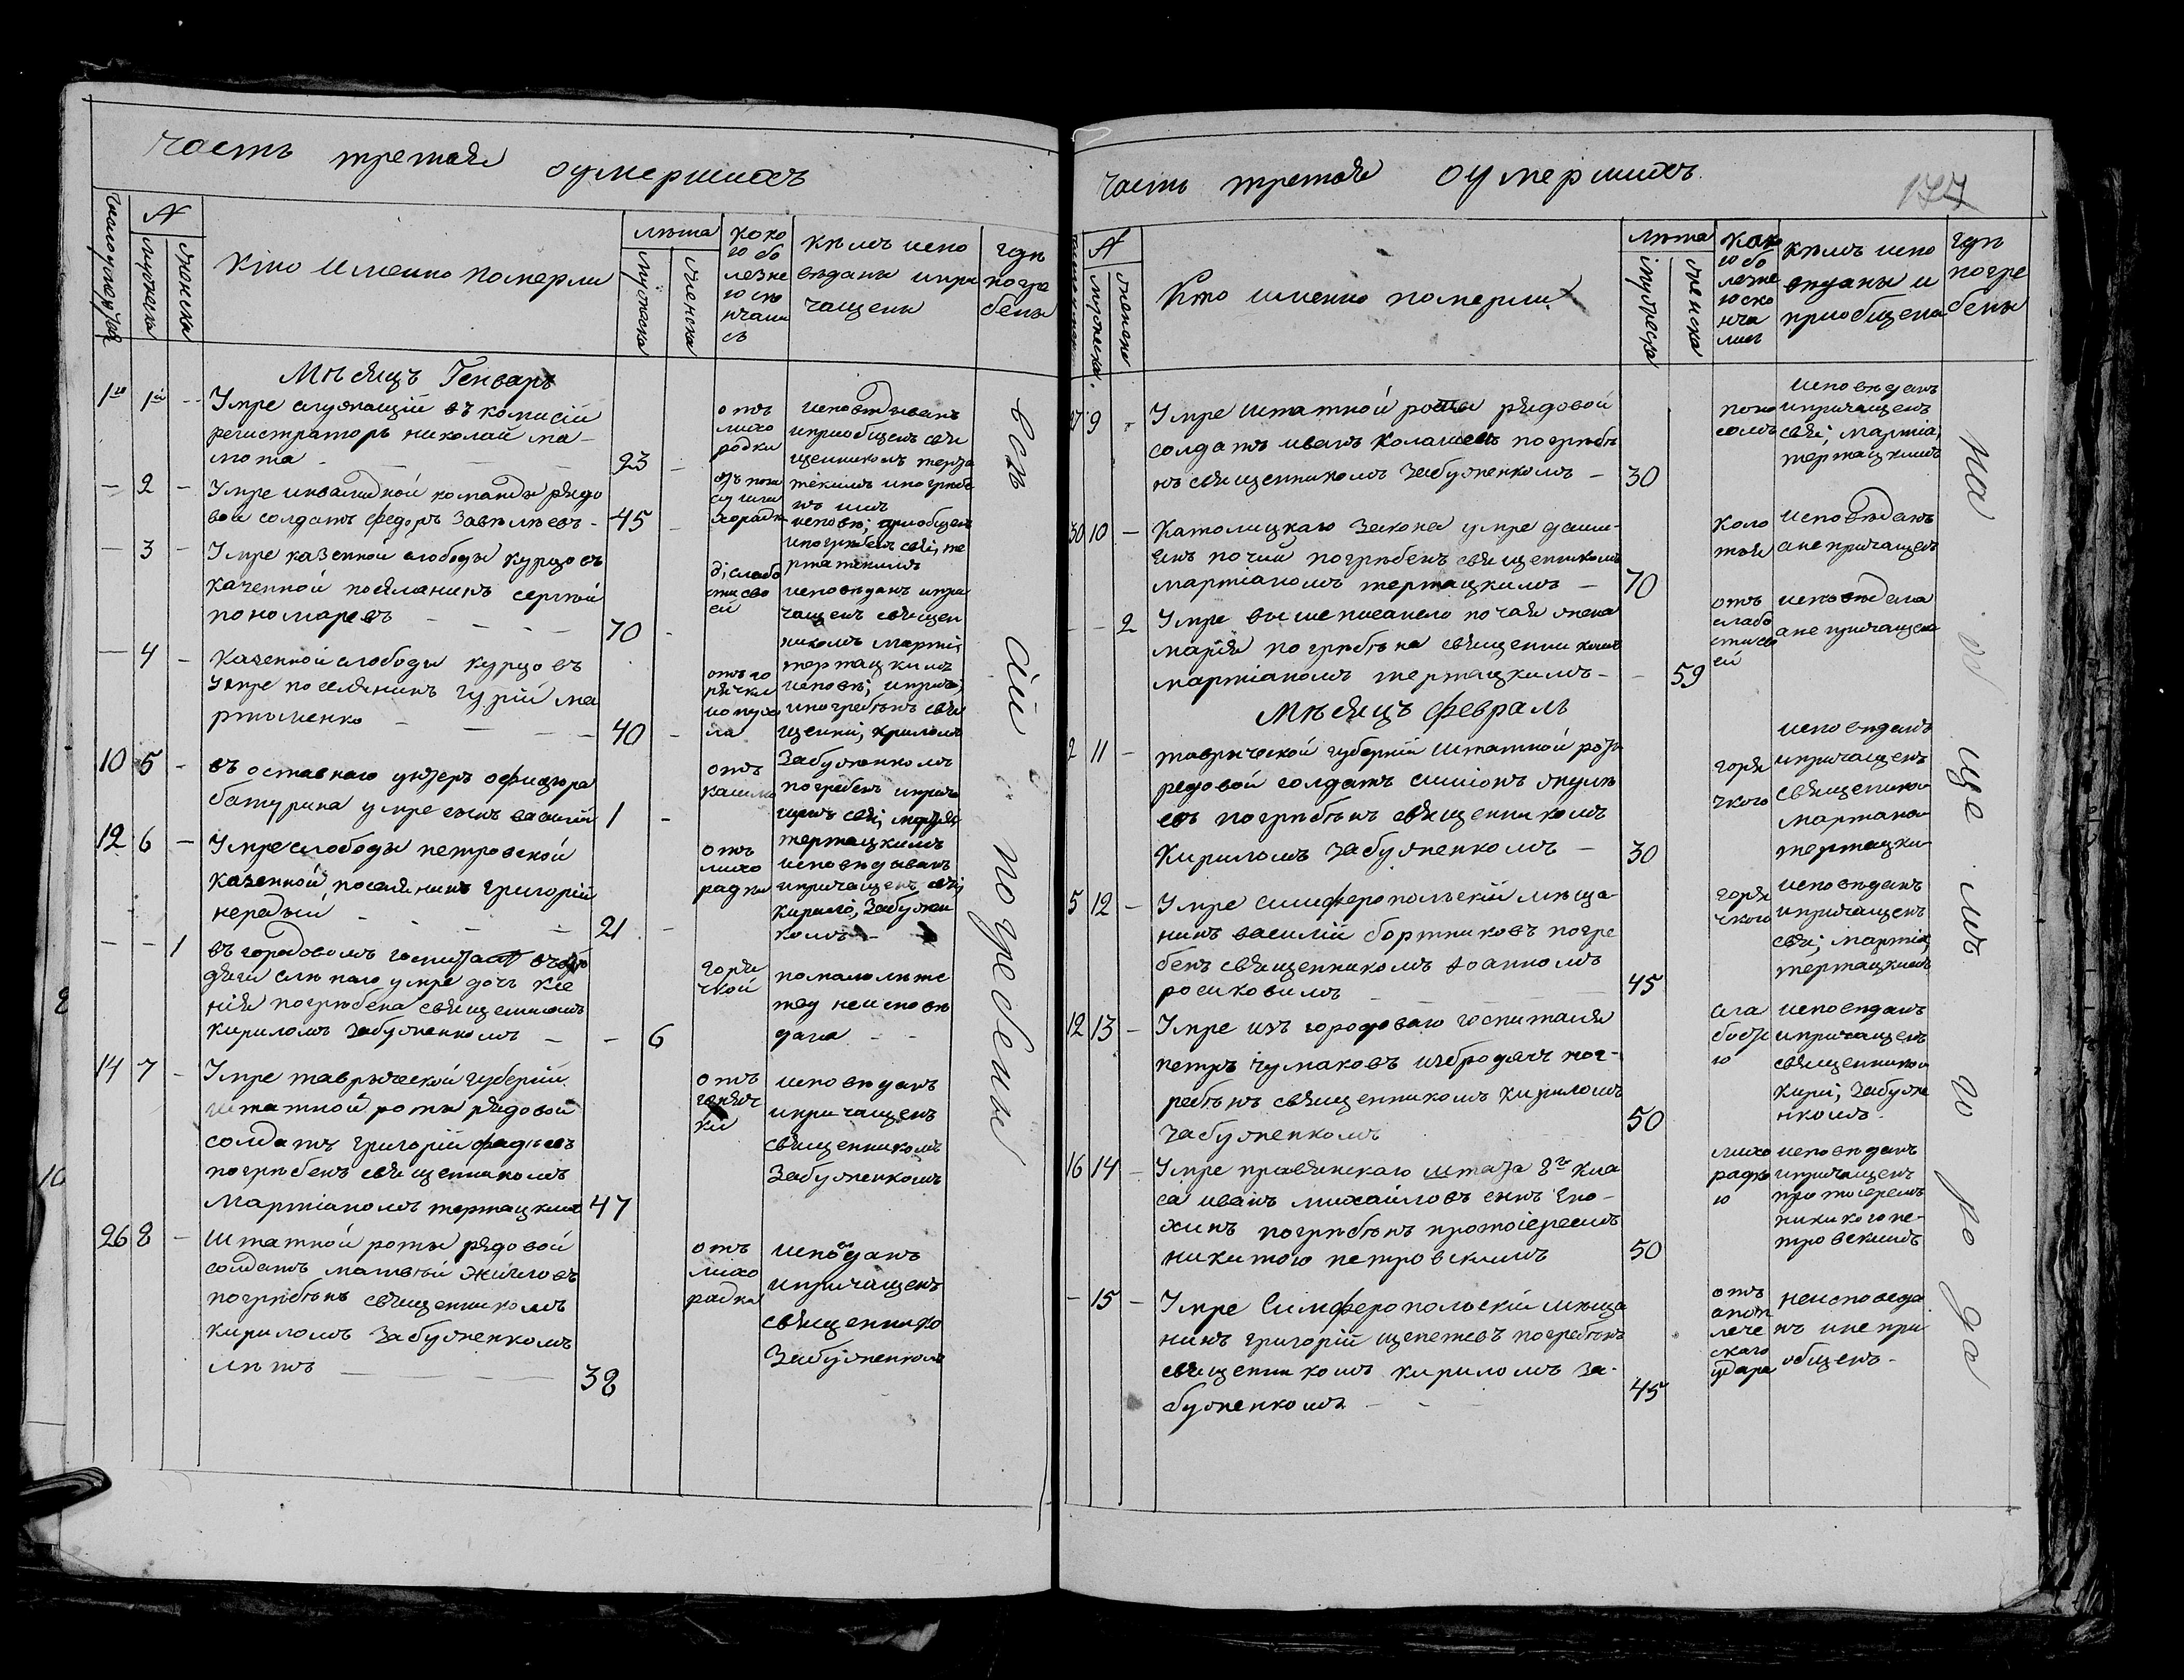 часть третая оумершихъ
N
мужеска
женска
Кто именно померли
лѣта
мужеска
женска
како
го бо
лезне
ю ско
нчали
сь
кѣмъ испо
вѣданы ипри
чащены
гдѣ
погре
бены
Мѣсяцъ Генварь
1го 1й - Умре служащій въ комисіи
регистраторъ николай ма-
мота - - - 23 -
отъ
лихо
родки
исповѣдыванъ
иприобщенъ свя
щенникомъ
- 2 - Умре инвалидной команды рядо
вой солдатъ федоръ 45 -
исповѣ; приобщенъ
ипогрѣбенъ свя;
- 3 - Умре казенной слободы курцовъ
казенной поселянинъ сергѣй
пономаревъ - - - 70 -
слабо
сти сво
ей
исповѣданъ ипри
чащенъ священ
никомъ марті;
тертацкимъ
- 4 - Казенной слободы курцовъ
умре поселянинъ гурій ма
ртыненко - - - 40 -
отъ го
рячки
исповѣ; иприч;
ипогребѣнъ свя
щенни; кириломъ
Забужненкомъ
10 5 - въ оставнаго унтеръ офицера
батурина умре сынъ василій 1 -
отъ
кашлю
погребенъ иприча
щенъ свя;
тертацкимъ
12 6 - Умре слободы петровской
казенной поселянинъ григорій
нередый - - - 21 -
отъ
лихо
радки
исповѣдыванъ
ипричащенъ свя;
кирило; Забужнен
комъ -
- - 1 въ городовомъ госпиталѣ
умре дочь ксе
нія погрѣбена священикомъ
кириломъ Забужненкомъ - - 6
горя
чкой
помалолѣтс
тву неисповѣ
дана - -
14 7 - Умре таврической губерніи
штатной роты рядовой
солдатъ григорій фадѣевъ
погрѣбенъ священникомъ
Мартіаномъ тертацкимъ 47
отъ
горяч
ки
исповѣданъ
ипричащенъ
священникомъ
Забужненкомъ
26 8 - Штатной роты рядовой
солдатъ матвѣй жиловъ
погрѣбѣнъ священникомъ
кириломъ Забужненкомъ
лѣтъ - - - 38
отъ
лихо
радки
исповѣданъ
ипричащенъ
священнико
Забужненкомъ
всѣ
погребены
часть третая оумершихъ
177
N
мужеска
женска
Кто именно померли
лѣта
мужеска
женска
како
ю бо
лезне
ю ско
нча
лись
кѣмъ испо
вѣданы и
приобщены
гдѣ
погре
бены
27 9 - Умре штатной роты рядовой
солдатъ иванъ погрѣбѣ
нъ священникомъ Забужненкомъ - 30
поно
сомъ
исповѣданъ
ипричащенъ
свя; мартіа;
тертацкимъ
30 10 - Католицкаго закона умре
погрѣбенъ священникомъ
мартіаномъ тертацкимъ - 70
коло
тья
исповѣданъ
ане причащенъ
- - 2 Умре вышеписанаго почая жена
марія погрѣбѣна священникомъ
мартіаномъ тертацкимъ - - 59
отъ
слабо
сти сво
ей
исповѣдана
ане причащена
Мѣсяцъ февраль
2 11 - таврической губерніи штатной роты
редовой солдатъ симіонъ
погрѣбѣнъ священникомъ
Кириломъ Забужненкомъ - 30
горя
чкою
исповѣданъ
ипричащенъ
священником
мартаном
тертацки
5 12 - Умре симферопольскій мѣща
нинъ василій бортниковъ погре
бенъ священникомъ Іоанномъ
росиковимъ - - 45
горя
чкою
исповѣданъ
ипричащенъ
свя; мартіа;
тертацкимъ
12 13 - Умре изъ городоваго госпиталя
петръ чумаковъ избродягъ пог-
ребѣнъ священникомъ кириломъ
Забужненкомъ 50
сла
бостi
ю
исповѣданъ
ипричащенъ
священником
Кири; Забужне
нкомъ -
16 14 - Умре правянскаго штата 8го кла
са иванъ михайловъ сынъ Епо-
хинъ погрѣбѣнъ протоіереемъ
никитою петровскимъ 50
лихо
радко
ю
исповѣданъ
ипричащенъ
протоіереемъ
никикою пе-
тровскимъ
- 15 - Умре Симферопольскій мѣща
нинъ григорій щепетевъ погребѣнъ
священникомъ кириломъ за-
бужненкомъ - - 45
отъ
апоп
лече
скаго
удара
неисповеда
нъ ине при
общенъ -
на